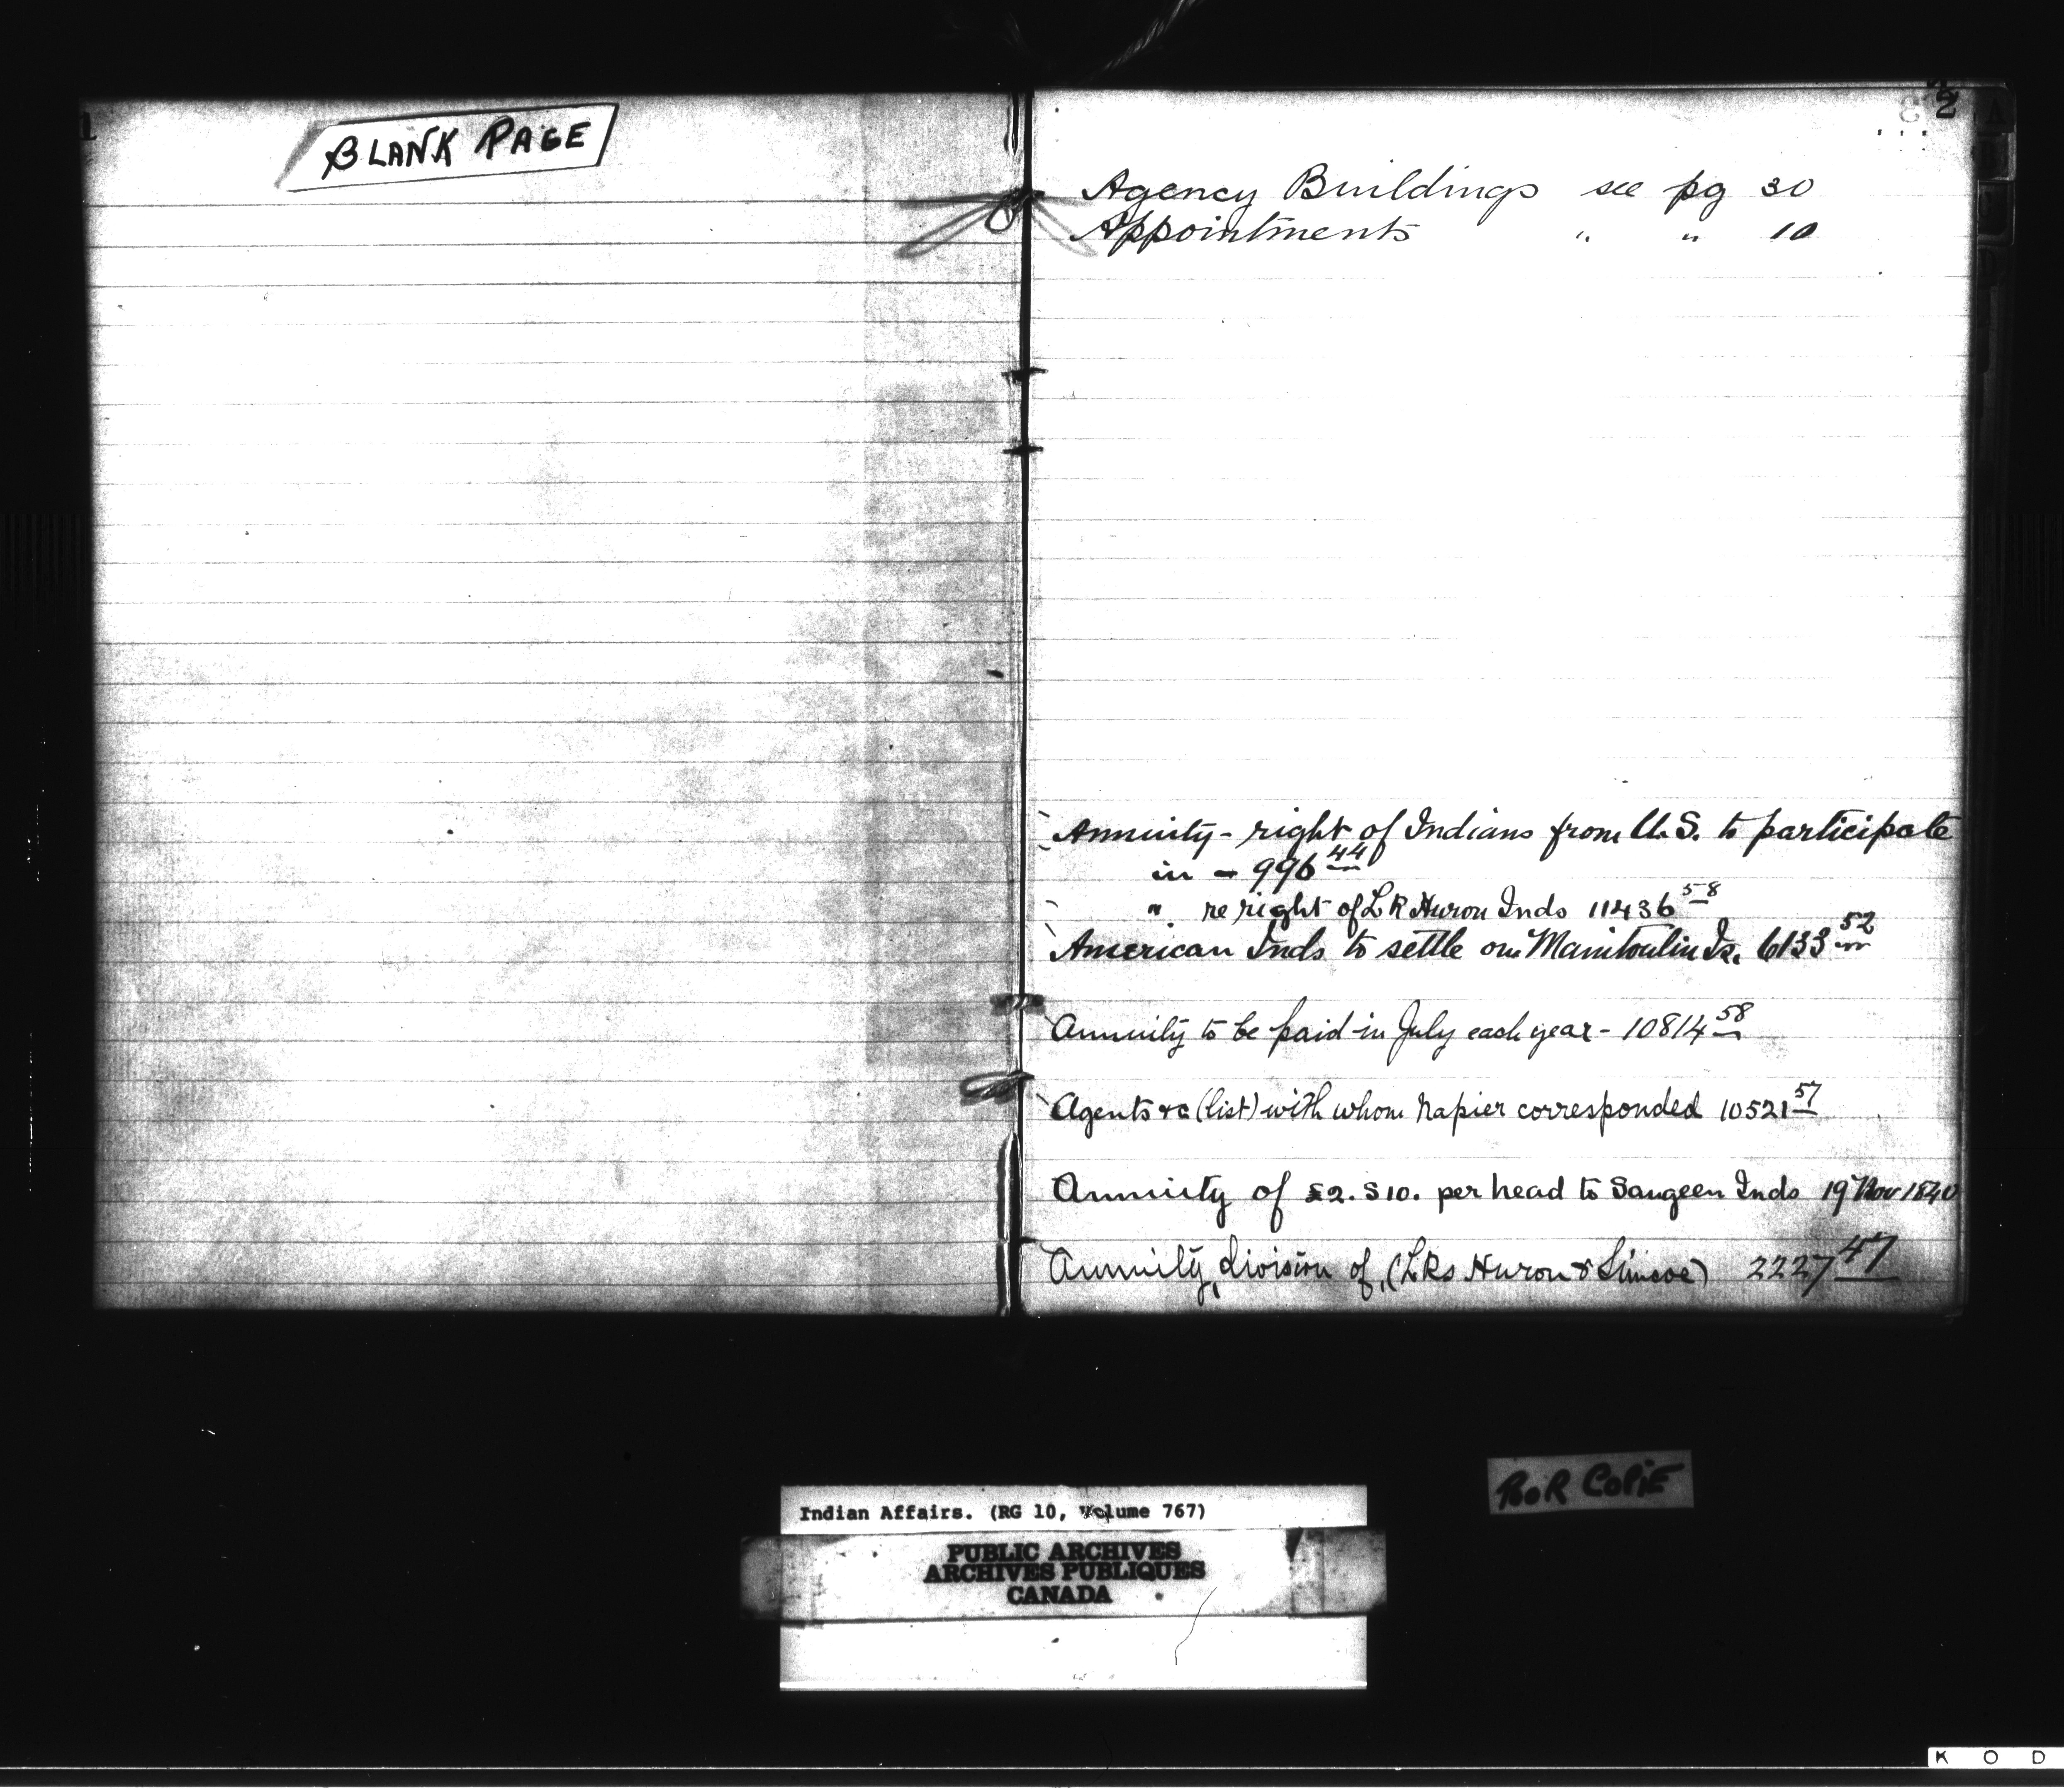 1
BLANK PAGE
2
A
Agency Buildings see pg 30
Appointments " " 10
Annuity - right of Indians from U.S. to participate
in - 996 44
" re right of Lk Huron Inds 11436 58
American Inds to settle on Manitoulin Is. 6133 52
Annuity to be paid in July each year - 10814 58
Agents &c (list) with whom Napier corresponded 10521 57
Annuity of £2. S10. per head to Saugeen Inds 19 Nov 1840
Annuity, division of, (Lks Huron & Simcoe) 2227 47
POOR COPIE
Indian Affairs. (RG 10, Volume 767)
PUBLIC ARCHIVES
ARCHIVES PUBLIQUES
CANADA
K O D